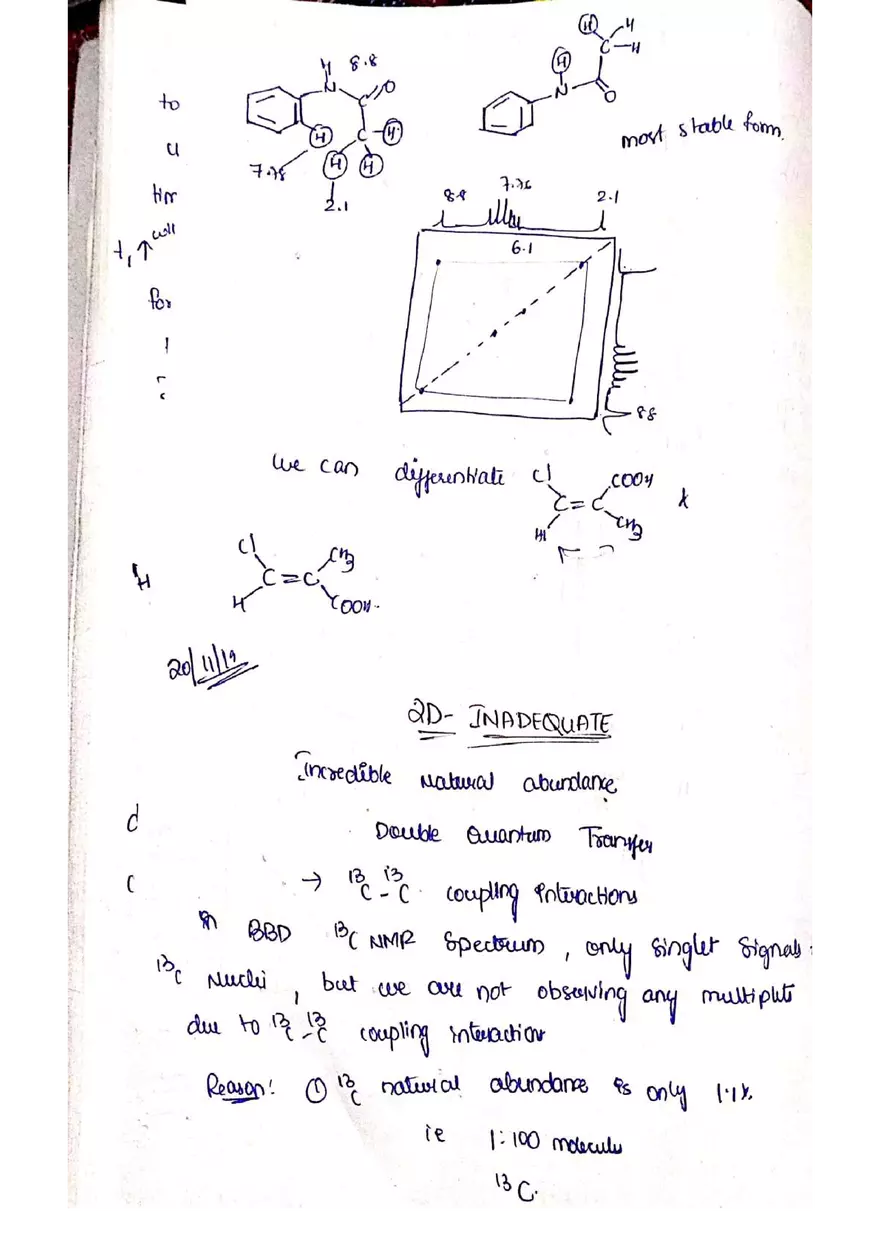 H 8.8
N
O
C
H
C H
H H
7.78
2.1
H H
C-H
H
N
O
most stable form.
to
u
t₁ ↑ will
for
8.8 7.76 2.1
6.1
88
we can differentiate
Cl COOH
C=C
H CH3
Cl CH3
C=C
H COOH.
H
20/11/19
2D- INADEQUATE
Incredible Natural abundance
Double Quantum Transfer
→ 13C - 13C. coupling interactions
In BBD 13C NMR Spectrum, only singlet signals
13C Nuclei, but we are not observing any multiplets
due to 13C-13C coupling interaction
Reason: ① 13C natural abundance is only 1.1%.
ie 1:100 molecules
13C.